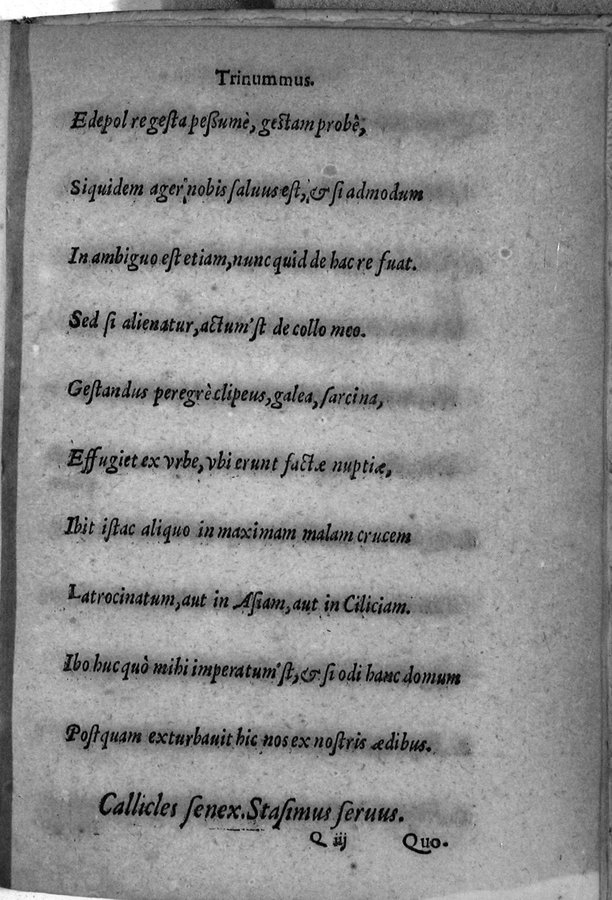 Trinummus.
Edepol re gesta peßumè, gestam probè,
Siquidem ager nobis saluus est, & si admodum
In ambiguo est etiam, nunc quid de hac re fuat.
Sed si alienatur, actum'st de collo meo.
Gestandus peregrè clipeus, galea, sarcina,
Effugiet ex vrbe, vbi erunt factæ nuptiæ,
Ibit istac aliquo in maximam malam crucem
Latrocinatum, aut in Asiam, aut in Ciliciam.
Ibo huc quò mihi imperatum'st, & si odi hanc domum
Postquam exturbauit hic nos ex nostris ædibus.
Callicles senex. Stasimus seruus.
Q iij Quo.